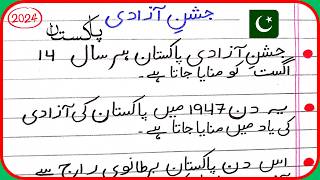 2024
جشنِ آزادی
پاکستان
جشنِ آزادی پاکستان ہر سال 14
اگست کو منایا جاتا ہے۔
یہ دن 1947 میں پاکستان کی آزادی
کی یاد میں منایا جاتا ہے۔
اس دن پاکستان برطانوی راج سے